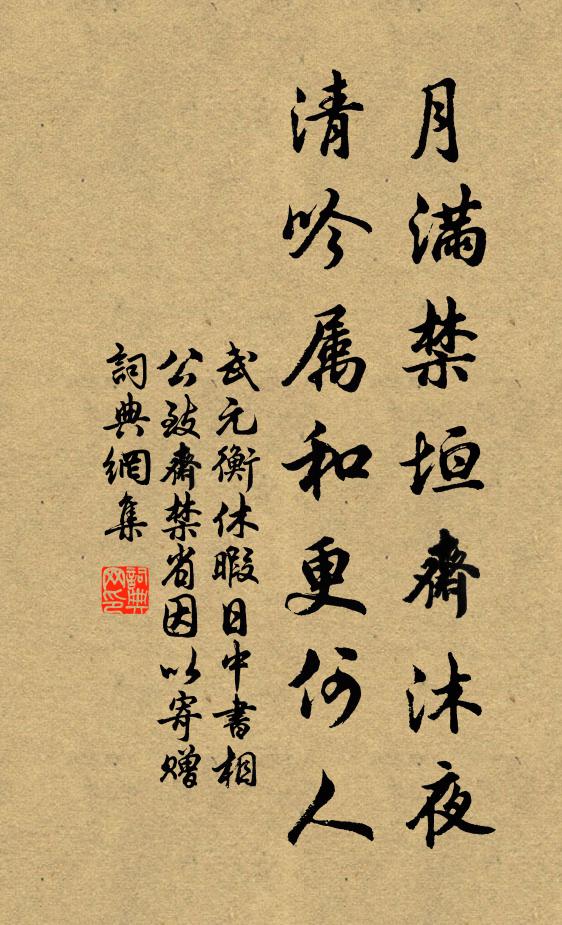 月滿禁垣齋沐夜
清吟属和更何人
武元衡休暇日中書相
公致齋禁省因以寄贈
詞典網集
詞典网印